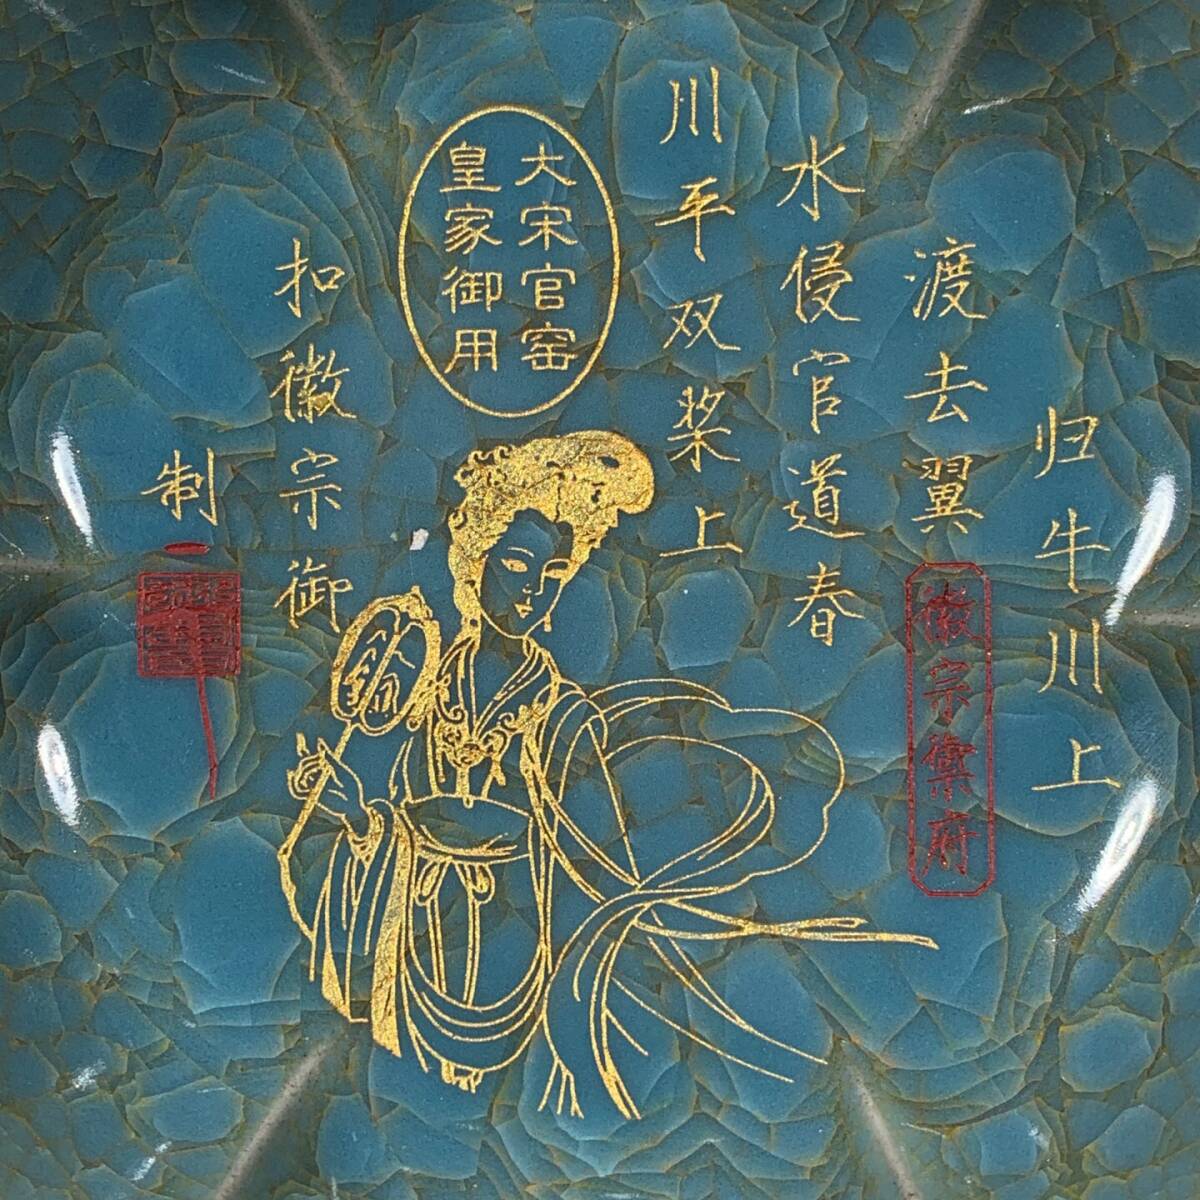 归牛川上
渡去翼
水侵官道春
川平双桨上
大宋官窑
皇家御用
扣徽宗御
制
徽宗御府